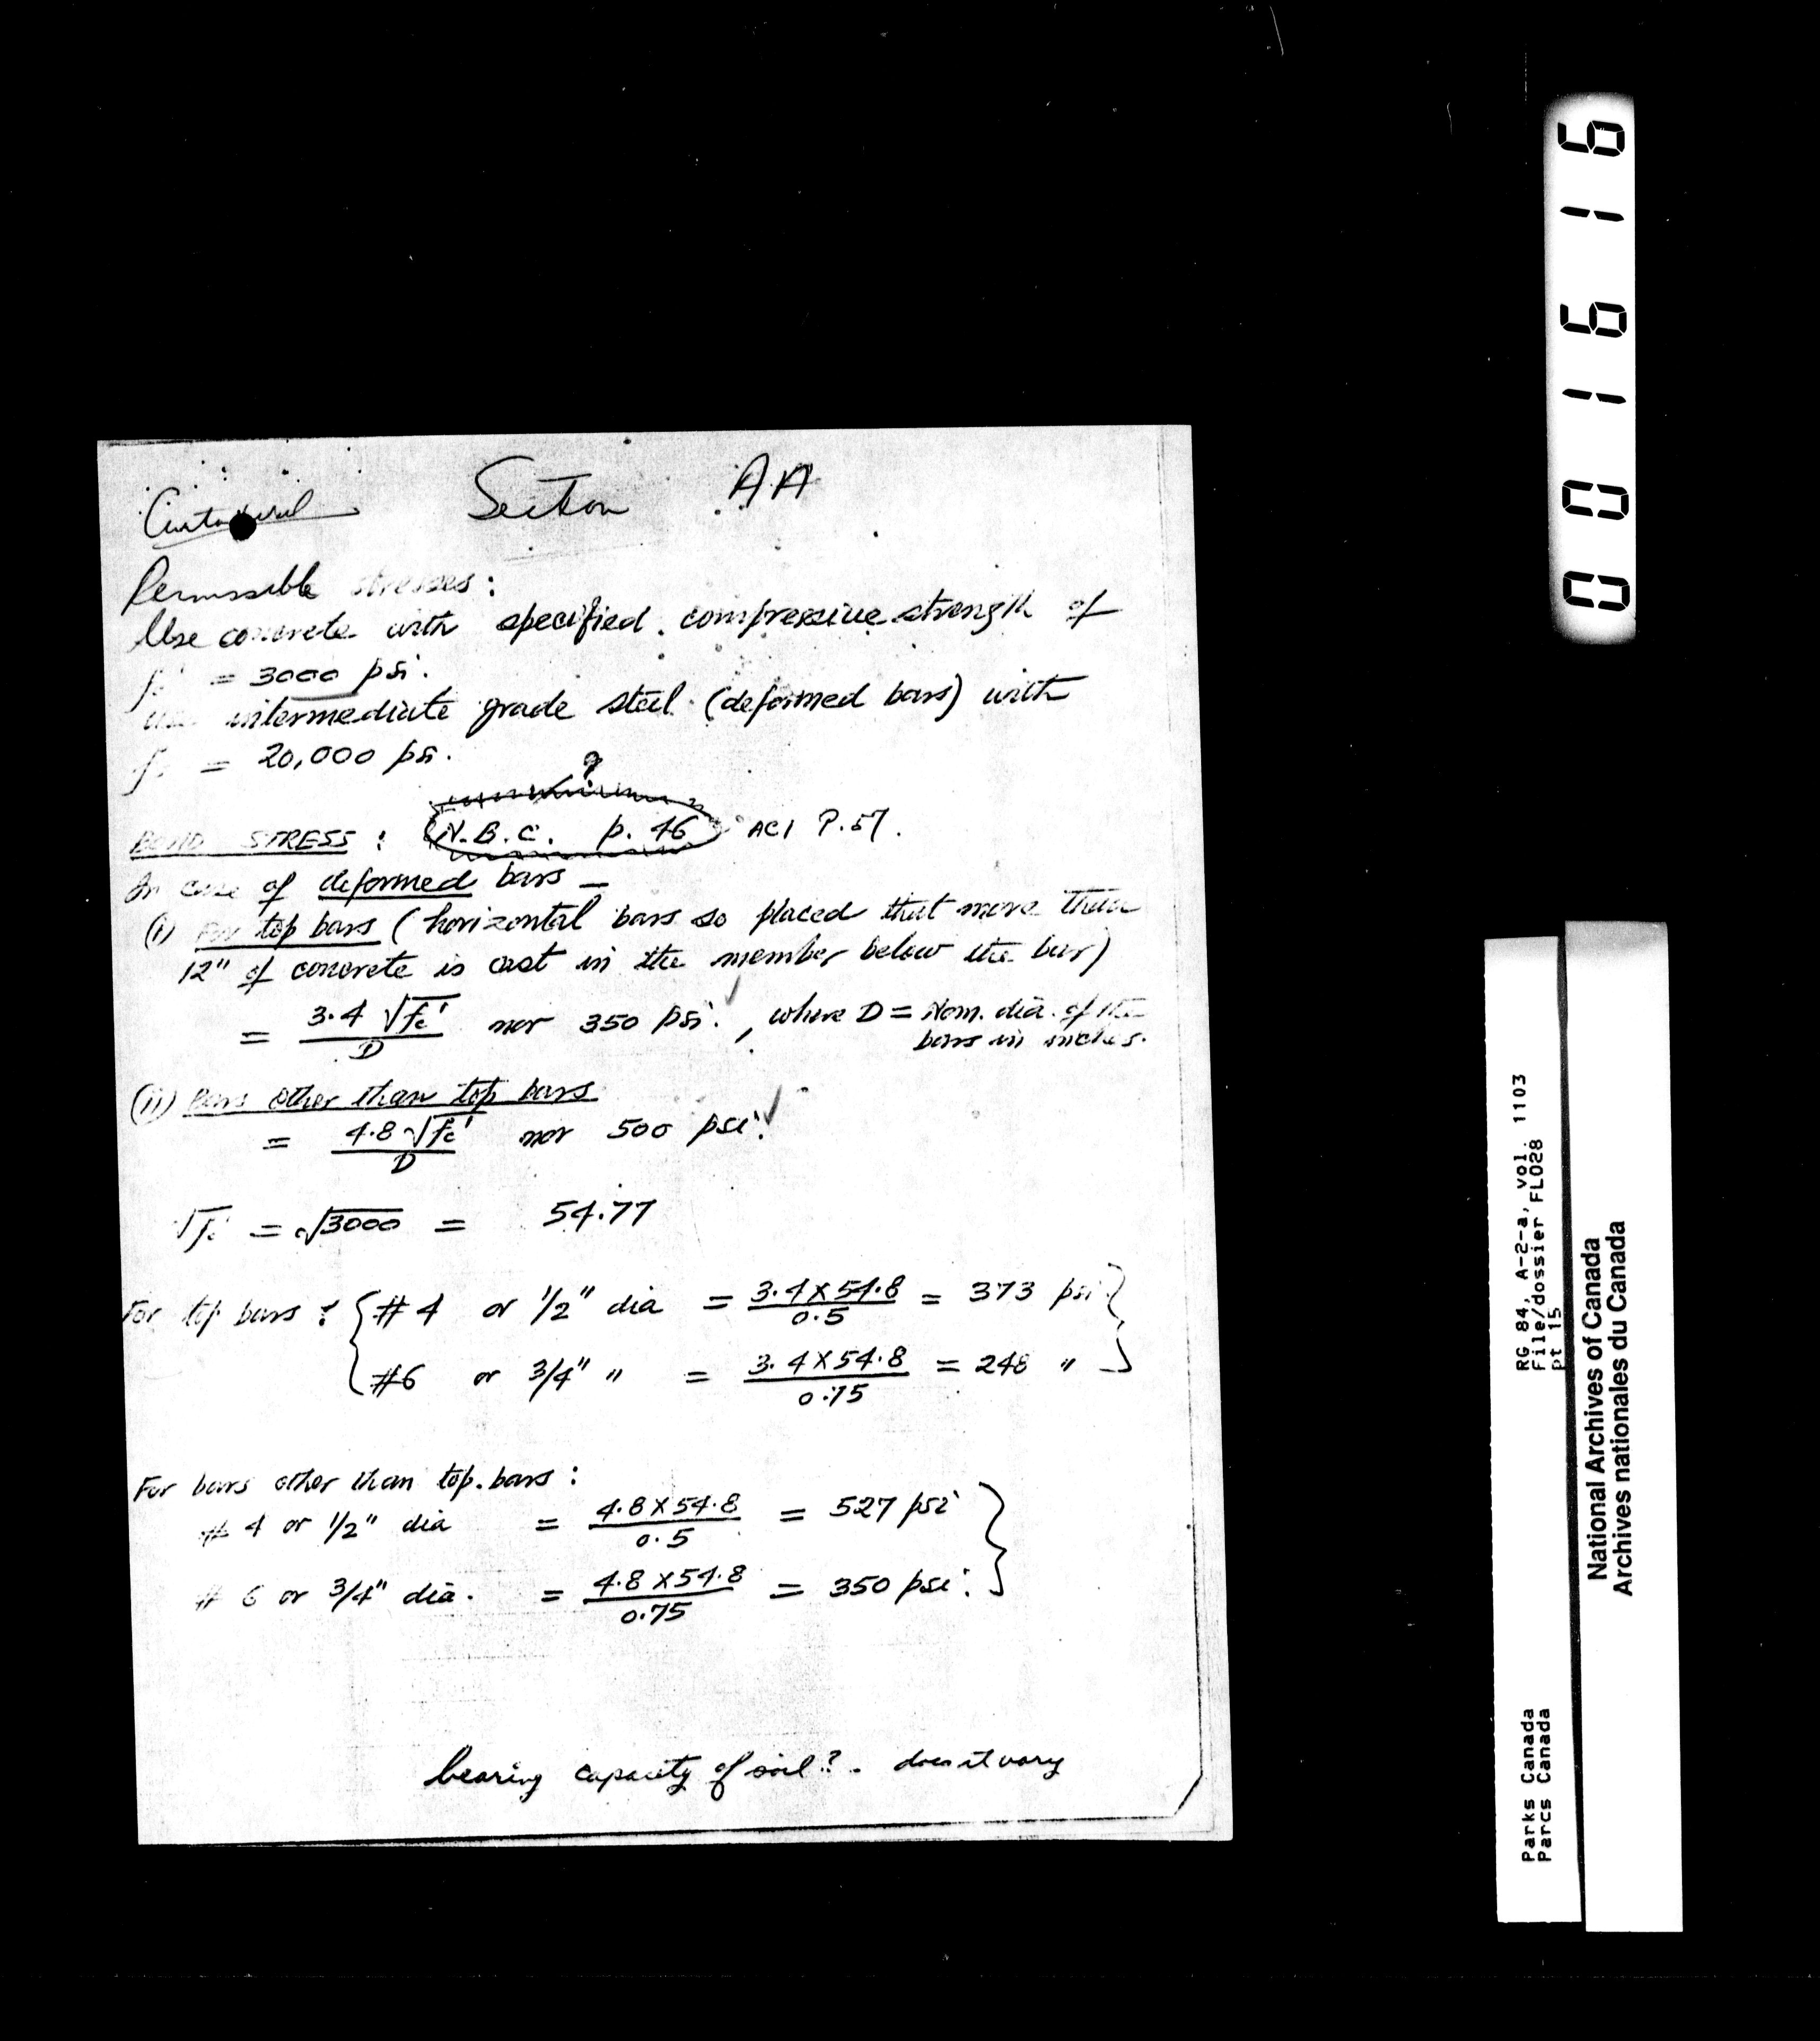 Section AA
Permissible stresses:
Use concrete with specified compressive strength of
fc' = 3000 psi.
use intermediate grade steel (deformed bars) with
= 20,000 psi.
?
BOND STRESS : N.B.C. p. 46 ACI P.57.
In case of deformed bars —
(i) For top bars (horizontal bars so placed that more than
12" of concrete is cast in the member below the bar)
= 3.4 √fc' / D nor 350 psi. , where D = Nom. dia. of the
bars in inches.
(ii) Bars other than top bars
= 4.8 √fc' / D nor 500 psi.
√fc' = √3000 = 54.77
For top bars : { #4 or 1/2" dia = 3.4 X 54.8 / 0.5 = 373 psi }
#6 or 3/4" " = 3.4 X 54.8 / 0.75 = 248 "
For bars other than top bars :
# 4 or 1/2" dia = 4.8 X 54.8 / 0.5 = 527 psi }
# 6 or 3/4" dia. = 4.8 X 54.8 / 0.75 = 350 psi.
bearing capacity of soil? . does it vary
001616
RG 84, A-2-a, vol. 1103
File/dossier FL028
pt 15
Parks Canada
Parcs Canada
National Archives of Canada
Archives nationales du Canada